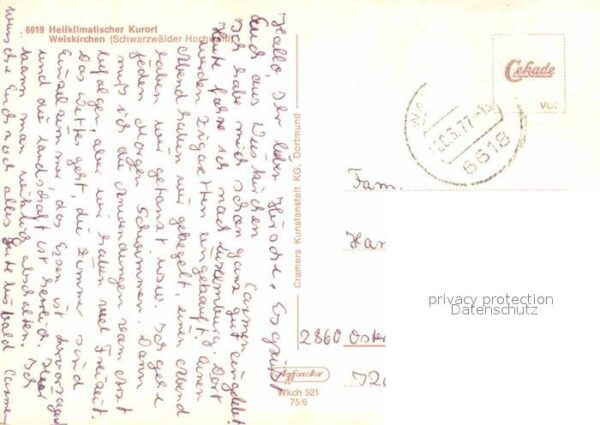 6619 Heilklimatischer Kurort
Weiskirchen (Schwarzwälder Hochwald)
Hallo Ihr lieben Hirsche. Es grüßt
Euch aus Weiskirchen Carmen.
Ich habe mich schon ganz gut eingelebt.
Heute fahre ich nach Luxemburg. Dort
werden Zigaretten eingekauft. Einen
Abend haben wir gekegelt, einen Abend
haben wir getanzt usw. Ich gehe
jeden Morgen Schwimmen. Dann
muß ich die Anwendungen vom Arzt
befolgen, aber wir haben viel Freizeit.
Das Wetter geht, die Zimmer sind
Einzelzimmer, das Essen ist hervorragend
und die Landschaft ist herrlich. Hier
kann man wirklich abschalten. Ich
wünsche Euch noch alles Gute bis bald Carmen
Cramers Kunstanstalt KG, Dortmund
Cekade
20.5.77
6618
Fam.
Han
2860 Oster
Agfacolor
Wkch 521
75/6
privacy protection
Datenschutz